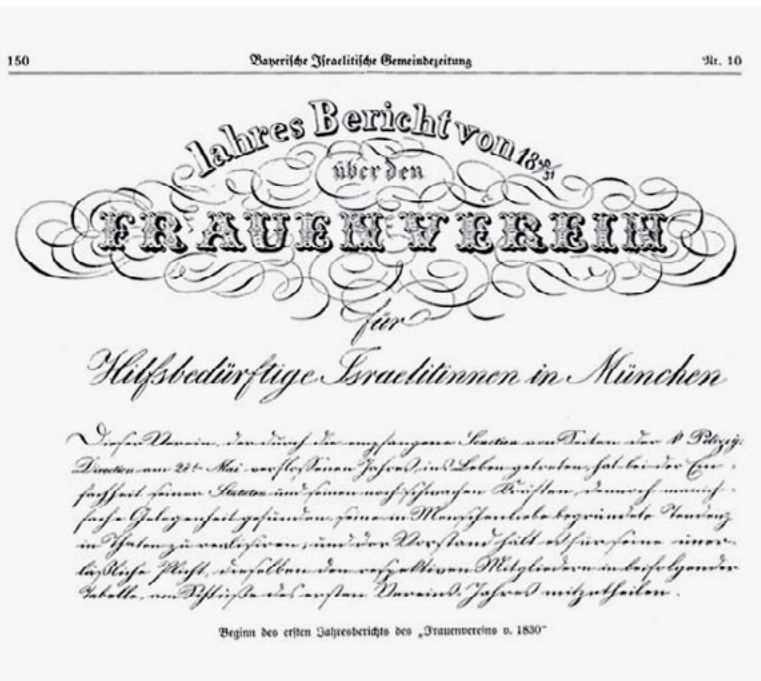 150 Bayerische Israelitische Gemeindezeitung Nr. 10
Jahres Bericht von 18 30/31
über den
FRAUEN VEREIN
für
Hilfsbedürftige Israelitinnen in München
Dieser Verein, der durch die empfangene Sanction von Seiten der k. Polizey-
Direction am 22t. Mai verflossenen Jahres, ins Leben getreten, hat bei der Ein-
fachheit seiner Statuten und seinen noch schwachen Kräften, dennoch manich-
fache Gelegenheit gefunden, seine in Menschenliebe begründete Tendenz
in Thaten zu realisiren; und der Vorstand hält es für seine uner-
läßliche Pflicht, dieselben den respektiven Mitgliedern in beifolgender
Tabelle, am Schluße des ersten Vereins-Jahres mitzutheilen.
Beginn des ersten Jahresberichts des „Frauenvereins v. 1830“